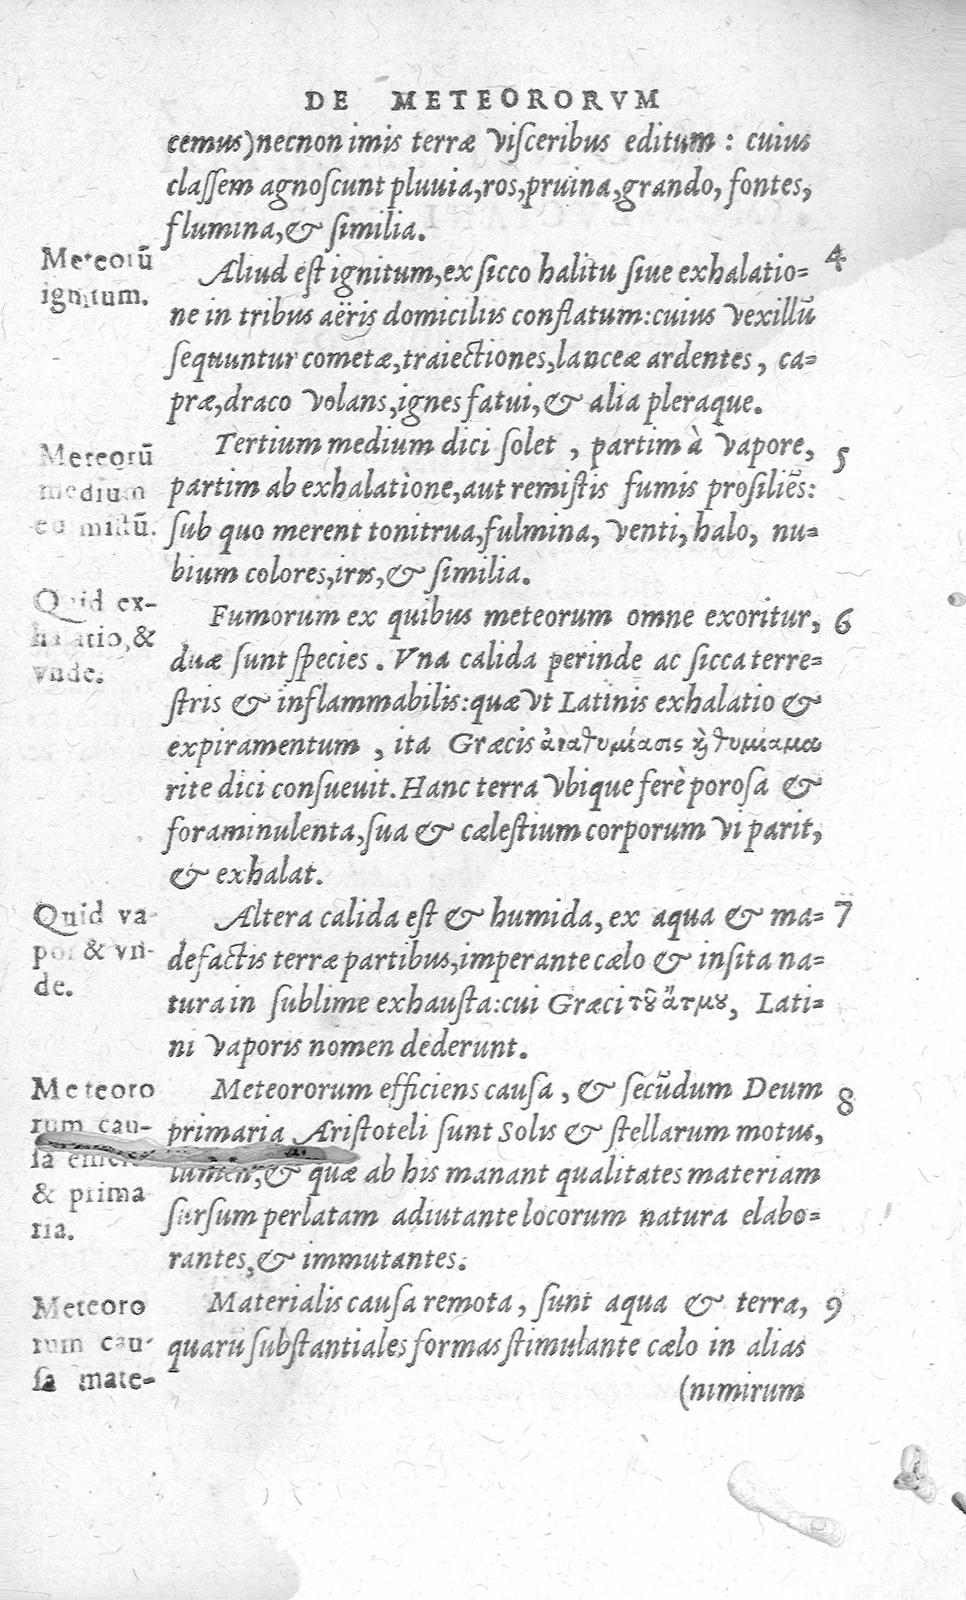 DE METEORORVM
cemus) necnon imis terræ viſceribus editum : cuius
claſſem agnoſcunt pluuia, ros, pruina, grando, fontes,
flumina, & ſimilia.
Meteorū
ignitum.
Aliud eſt ignitum, ex ſicco halitu ſiue exhalatio=
4
ne in tribus aëris domiciliis conflatum: cuius vexillū
ſequuntur cometæ, traiectiones, lanceæ ardentes, ca=
præ, draco volans, ignes fatui, & alia pleraque.
Meteorū
medium
eu miſtū.
Tertium medium dici ſolet , partim à vapore,
5
partim ab exhalatione, aut remiſtis fumis proſiliēs:
ſub quo merent tonitrua, fulmina, venti, halo, nu=
bium colores, iris, & ſimilia.
Quid ex-
halatio, &
vnde.
Fumorum ex quibus meteorum omne exoritur,
6
duæ ſunt ſpecies. Vna calida perinde ac ſicca terre=
ſtris & inflammabilis: quæ vt Latinis exhalatio &
expiramentum , ita Græcis ἀναθυμίασις ϗ θυμίαμα
rite dici conſueuit. Hanc terra vbique ferè poroſa &
foraminulenta, ſua & cæleſtium corporum vi parit,
& exhalat.
Quid va-
por & vn-
de.
Altera calida eſt & humida, ex aqua & ma=
7
defactis terræ partibus, imperante cælo & inſita na=
tura in ſublime exhauſta: cui Græci τȣ͂ ἄτμȣ, Lati=
ni vaporis nomen dederunt.
Meteoro
rum cau-
ſa
& prima
ria.
Meteororum efficiens cauſa, & ſecūdum Deum
8
primaria Ariſtoteli ſunt Solis & ſtellarum motus,
lumen, & quæ ab his manant qualitates materiam
ſurſum perlatam adiutante locorum natura elabo=
rantes, & immutantes.
Meteoro
rum cau-
ſa mate-
Materialis cauſa remota, ſunt aqua & terra,
9
quarū ſubſtantiales formas ſtimulante cælo in alias
(nimirum